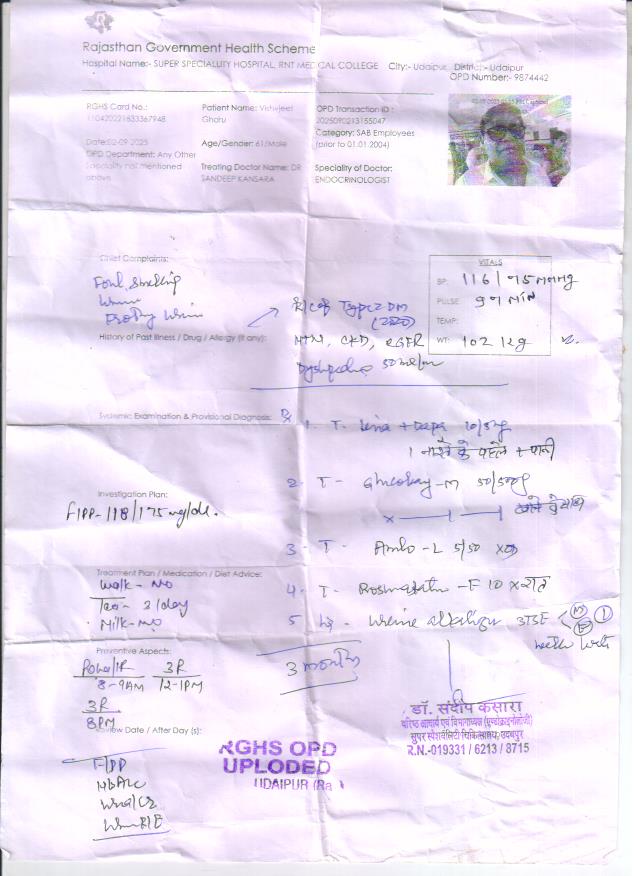 Rajasthan Government Health Scheme
Hospital Name:- SUPER SPECIALLITY HOSPITAL, RNT MEDICAL COLLEGE City:- Udaipur, District:- Udaipur
OPD Number:- 9874442
RGHS Card No.:
110420221633367948
Patient Name: Vishvjeet
Ghoru
OPD Transaction ID :
2025090213155047
Category: SAB Employees
(prior to 01.01.2004)
Date:02-09-2025
OPD Department: Any Other
Speciality not mentioned
above
Age/Gender: 61/Male
Treating Doctor Name: DR
SANDEEP KANSARA
Speciality of Doctor:
ENDOCRINOLOGIST
Chief Complaints:
Foul Smelling
Urine
Frothy Urine
K/c/o Type 2 DM
HTN, CKD, eGFR
50 ml/m
VITALS
BP: 116/75 mmHg
PULSE 99 MIN
TEMP:
WT: 102 kg
History of Past Illness / Drug / Allergy (if any):
Systemic Examination & Provisional Diagnosis:
Rx
1. T. Lina + Dapa 10/5mg
1 नाश्ते के पहले + पानी
2. T - Glucobay-M 50/500g
x 1 1
3 - T - Amlo-L 5/50
4. T - -F 10 x रात
5 Urine alkalizer
Investigation Plan:
F/PP-118/175 mg/dl.
Treatment Plan / Medication / Diet Advice:
Walk - NO
Tea - 2/day
Milk - NO
Preventive Aspects:
3R
8-9AM 12-1PM
3R
8PM
3 months
Review Date / After Day (s):
F/PP
HbA1c
Urea/Cr
Urine R/E
RGHS OPD
UPLODED
UDAIPUR (Ra
डॉ. संदीप कंसारा
वरिष्ठ आचार्य एवं विभागाध्यक्ष (एण्डोक्राइनोलॉजी)
सुपर स्पेशर्यलिटी चिकित्सालय, उदयपुर
R.N.-019331 / 6213 / 8715